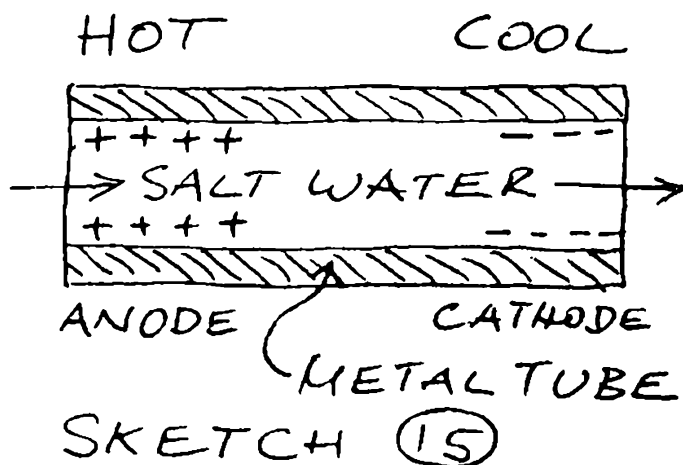 HOT COOL
+ + + + - - -
SALT WATER
+ + + + - - - -
ANODE CATHODE
METAL TUBE
SKETCH 15